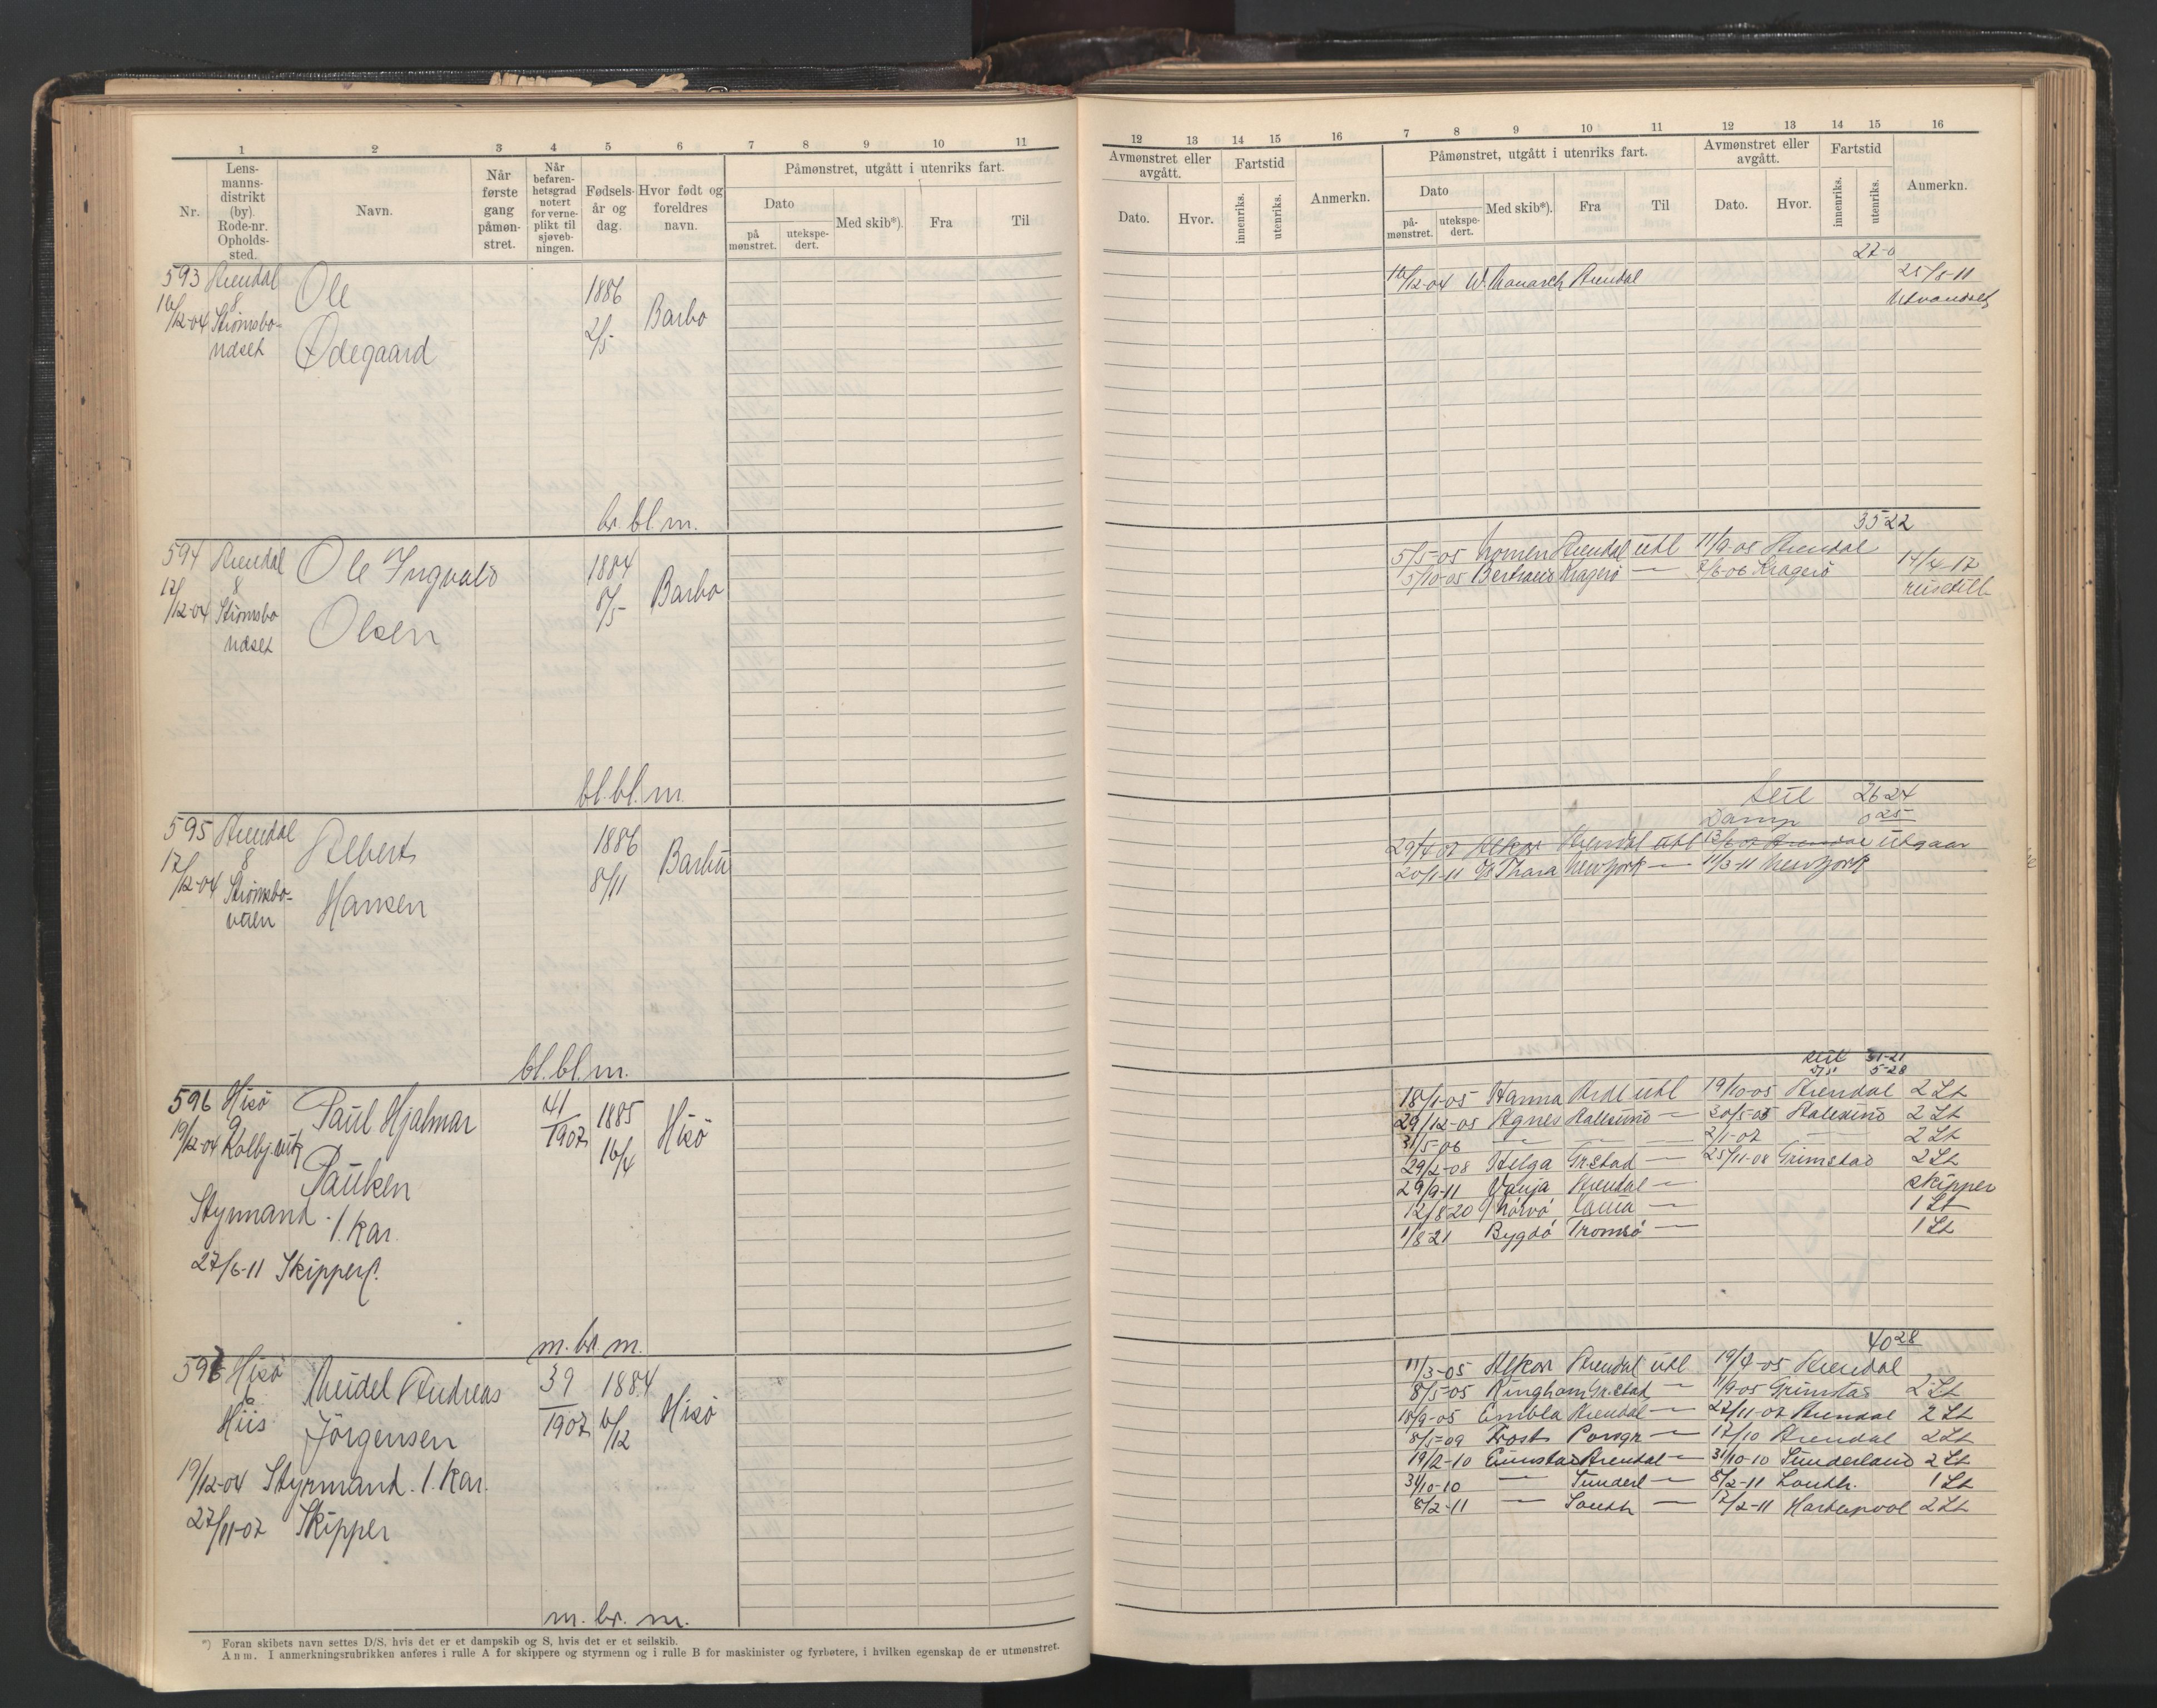 1 2 3 4 5 6 7 8 9 10 11
Nr. Lens-manns-distrikt (by). Rode-nr. Opholds-sted. Navn. Når første gang påmøn-stret. Når befaren-hetsgrad notert for verne-plikt til sjøveb-ningen. Fødsels-år og dag. Hvor født og foreldres navn. Påmønstret, utgått i utenriks fart.
Dato
på mønstret. utekspe-dert. Med skib*). Fra Til
593 Arendal Ole 1886 Barbo
16/12-04 8 Strømsbo- Ødegaard 2/5
ndset
br. bl. m.
594 Arendal Ole Ingvald 1884 Barbo
17/12-04 8 Strømsbo Olsen 8/5
ndset
bl. bl. m.
595 Arendal Albert 1886 Barbu
17/12-04 8 Strømsbo- Hansen 8/11
bl. bl. m.
596 Hisø Paul Hjalmar 41/1907 1885 Hisø
19/12-04 9 Kolbj.vik Paulsen 16/4
Styrmand. 1. Kar.
27/6-11 Skipper
m. br. m.
597 Hisø Reidel Andreas 39/1907 1884 Hisø
Hiis Jörgensen 6/12
19/12-04 Styrmand. 1. Kar.
27/11-07 Skipper
m. br. m.
*) Foran skibets navn settes D/S, hvis det er et dampskib og S, hvis det er et seilskib.
Anm. I anmerkningsrubrikken anføres i rulle A for skippere og styrmenn og i rulle B for maskinister og fyrbøtere, i hvilken egenskap de er utmønstret.
12 13 14 15 16 7 8 9 10 11 12 13 14 15 16
Avmønstret eller avgått. Fartstid Anmerkn. Påmønstret, utgått i utenriks fart. Avmønstret eller avgått. Fartstid Anmerkn.
Dato. Hvor. innenriks. utenriks. Dato på-mønstret. utekspe-dert. Med skib*). Fra Til Dato. Hvor. innenriks. utenriks.
27-0
16/12-04 W. Monarch Arendal 25/8-11
Utvandret
35-22
5/5-05 Arendal utl 11/9-05 Arendal
5/10-05 Kragerö — 2/6-06 Kragerö 14/4-17
Seil 26 24
Damp 0 25
29/4-07 Alkor Arendal utl 13/6-07 Arendal utgaar
20/1-11 D/S Thora Newyork — 11/3-11 Newyork
seil 31-21
D/S 5-28
18/1-05 Hanna Ardl utl 19/10-05 Arendal 2 St
29/12-05 Agnes Hallesund — 30/5-05 2 St
31/5-06 — — — 2/1-07 — 2 St
29/2-08 Helga Gr.stad — 25/11-08 Grimstad 2 St
29/9-11 Vanja Arendal — skipper
12/8-20 — 1 St
1/8-21 Bygdö Tromsö — 1 St
40 28
11/3-05 Alkor Arendal utl 19/4-05 Arendal
8/5-05 Ringhorn Gr.stad — 11/9-05 Grimstad 2 St
18/9-05 Embla Arendal — 27/11-07 Arendal 2 St
8/5-09 Frost Porsgr — 17/10 Arendal 2 St
19/2-10 Arendal — 31/10-10 Sunderland 2 St
31/10-10 — Sunderl — 8/2-11 South. 1 St
8/2-11 — South — 17/2-11 Hartlepool 2 St